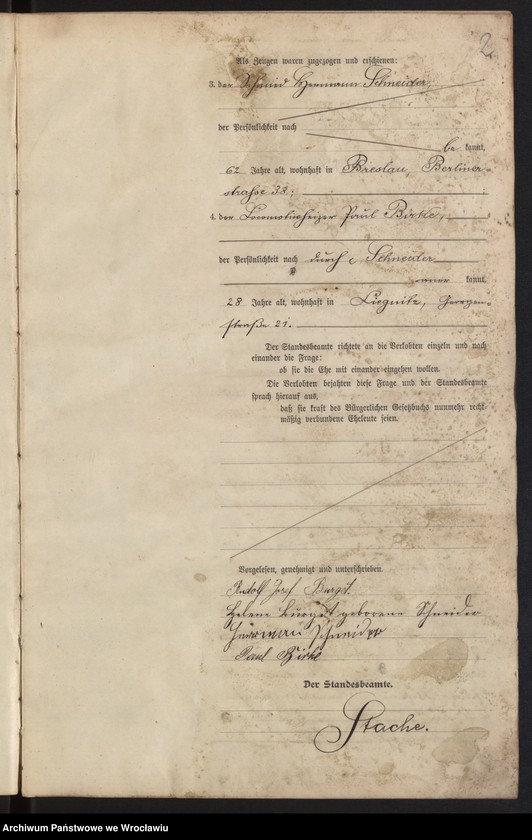 2
Als Zeugen waren zugezogen und erschienen:
3. der Schmied Hermann Schneider,
der Persönlichkeit nach
be kannt,
62 Jahre alt, wohnhaft in Breslau, Berliner-
straße 38;
4. der Locomotivheizer Paul Birke,
der Persönlichkeit nach durch Schneider
kannt,
28 Jahre alt, wohnhaft in Liegnitz,
straße 21.
Der Standesbeamte richtete an die Verlobten einzeln und nach
einander die Frage:
ob sie die Ehe mit einander eingehen wollen.
Die Verlobten bejahten diese Frage und der Standesbeamte
sprach hierauf aus,
daß sie kraft des Bürgerlichen Gesetzbuchs nunmehr recht-
mäßig verbundene Eheleute seien.
Vorgelesen, genehmigt und unterschrieben.
Rudolf Josef
Helene geborene Schneider
Herrman Schneider
Paul Birke
Der Standesbeamte.
Stache.
Archiwum Państwowe we Wrocławiu